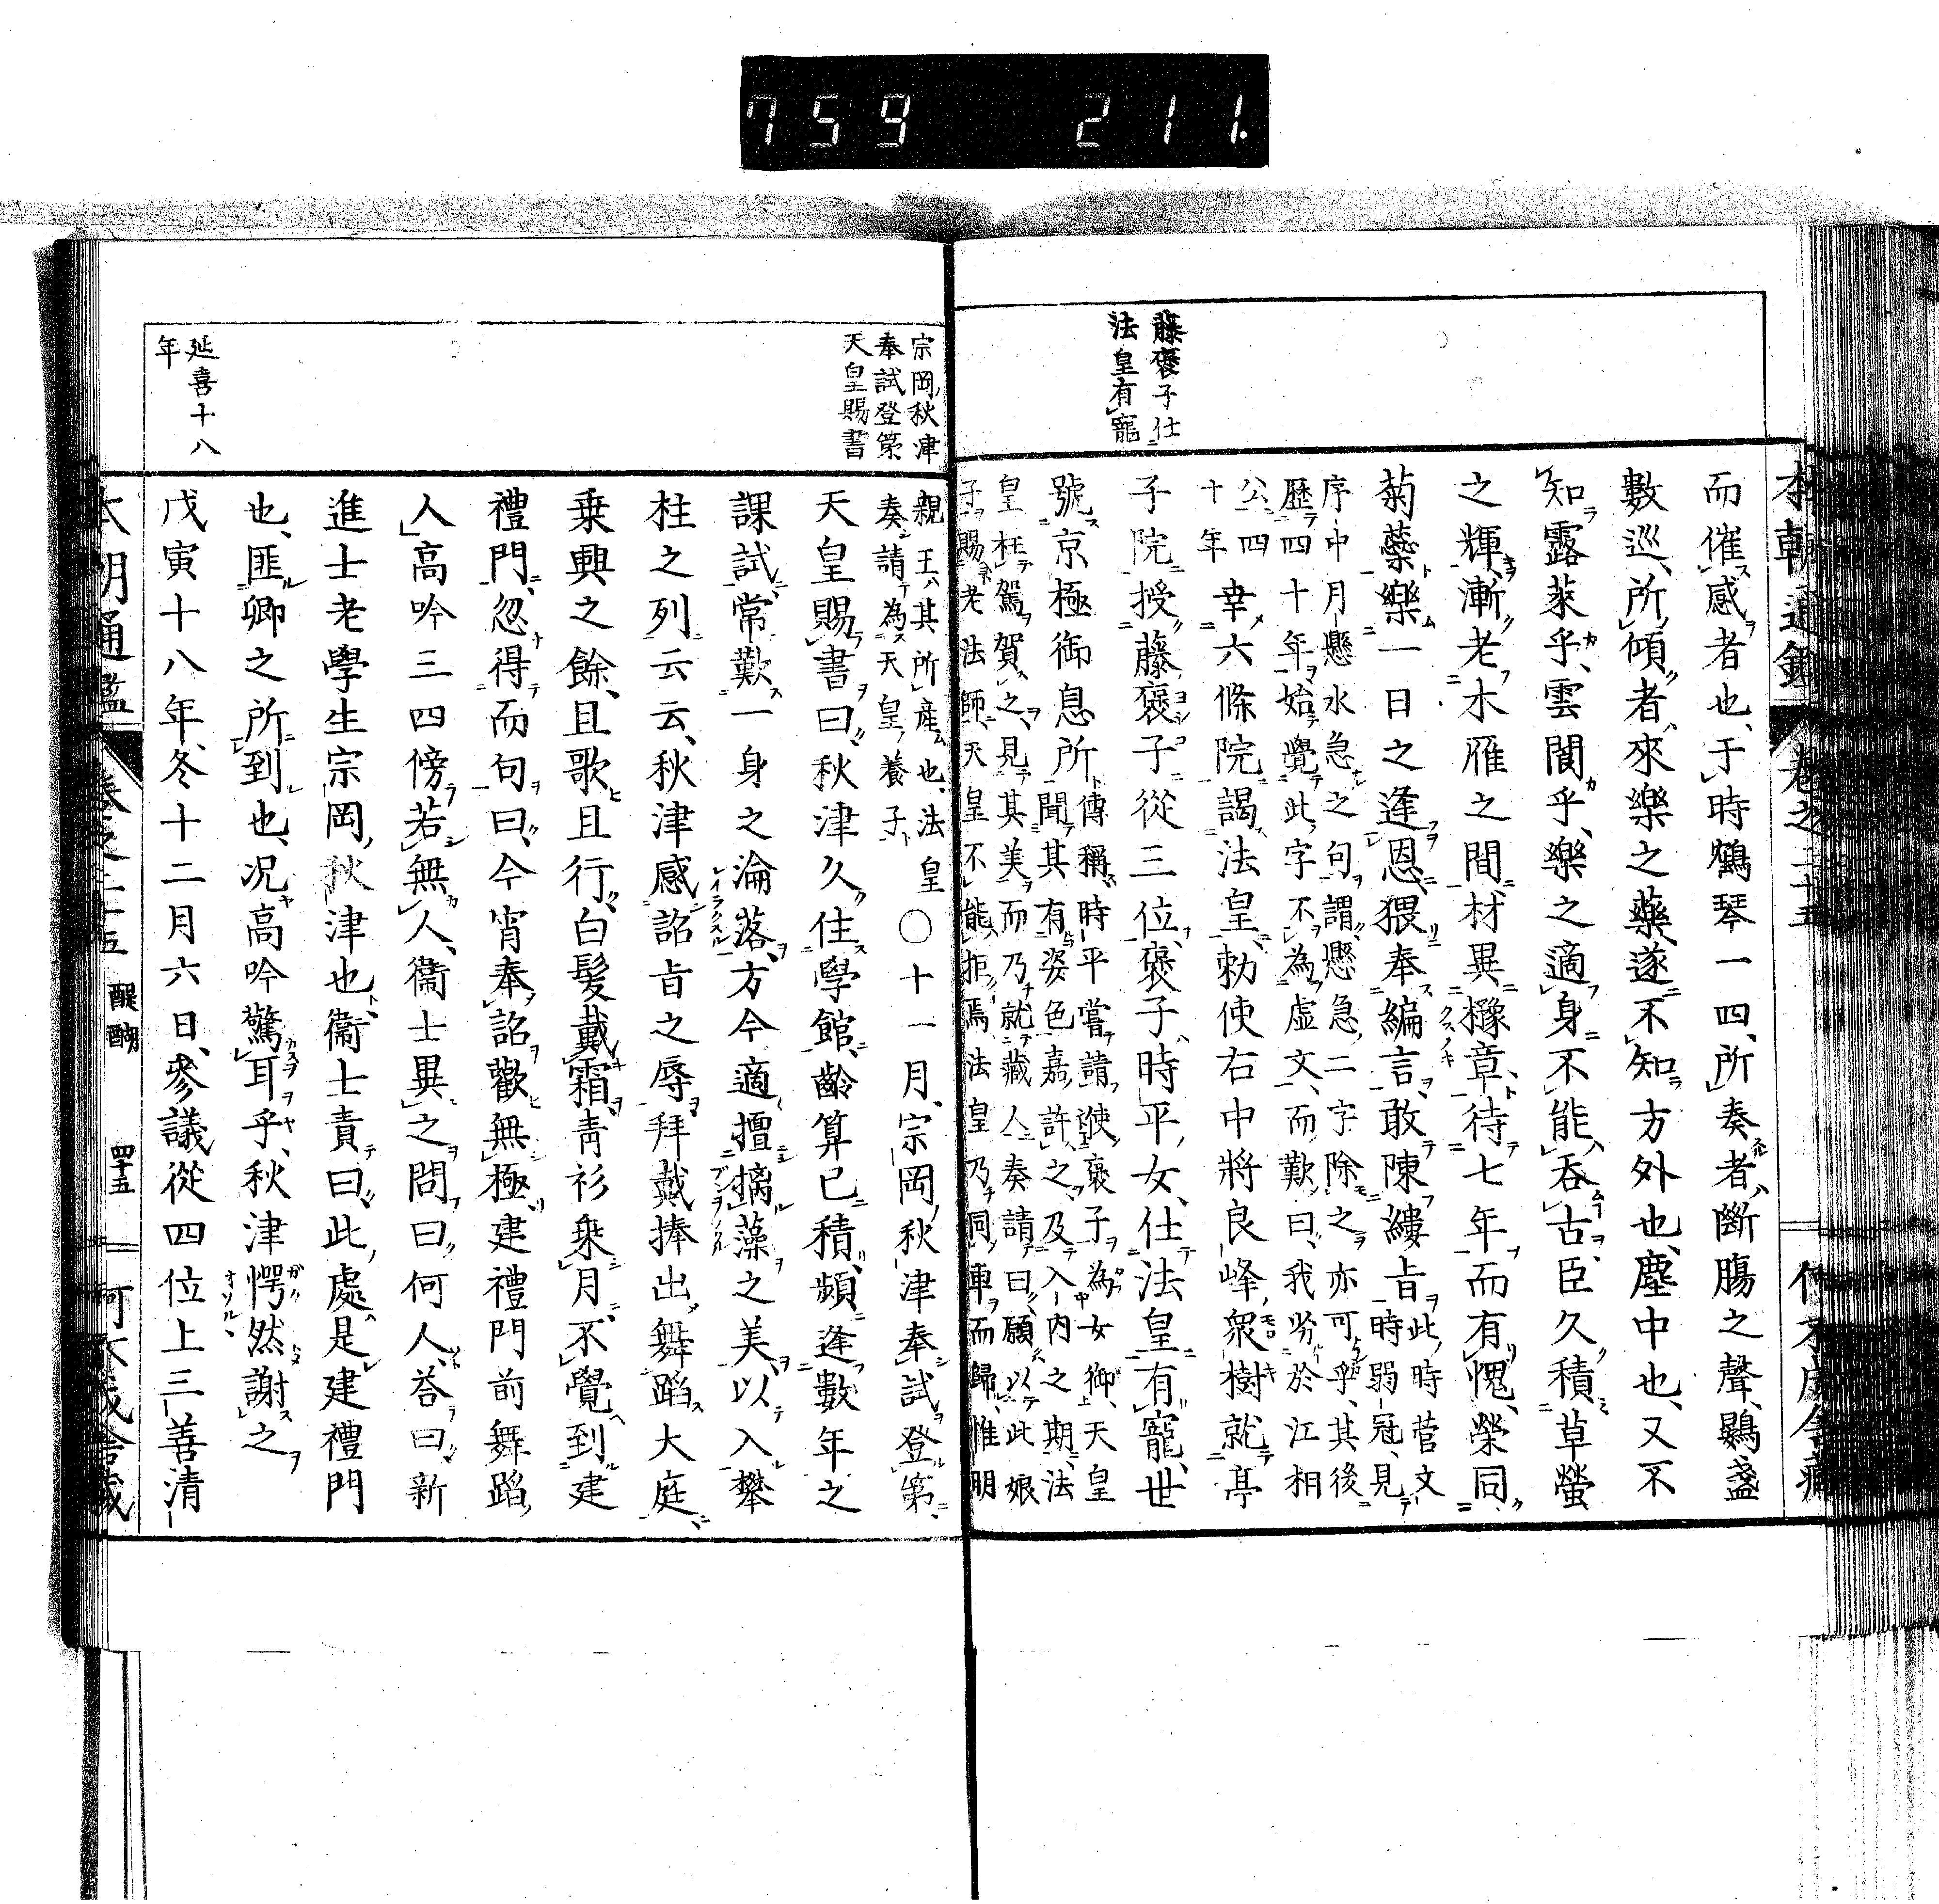 759 211.
本朝通鑑 卷之二十五
藤褒子仕
法皇有寵
而催感者也于時鶴琴一四所奏者斷腸之聲鸚盞
數巡所傾者來樂之藥遂不知方外也塵中也又不
知露萊乎雲閬乎樂之適身不能吞古臣久積草螢
之輝漸老木雁之間材異櫲章待七年而有愧榮同
菊蘂樂一日之逢恩猥奉編言敢陳縷旨此時菅文時弱冠見
序中月懸水急之句謂懸急二字除之亦可乎其後
歷四十年始覺此字不為虛文而歎曰我劣於江相
公四十年幸六條院謁法皇勅使右中將良峰衆樹就亭
子院授藤褒子從三位褒子時平女仕法皇有寵世
號京極御息所傳稱時平嘗請進褒子為女御天皇
聞其有姿色嘉許之及入內之期法
皇枉駕賀之見其美而乃就藏人奏請曰願以此娘
子賜老法師天皇不能拒焉法皇乃同車而歸惟明
宗岡秋津
奉試登第
天皇賜書
親王其所產也法皇
奏請為天皇養子
○十一月宗岡秋津奉試登第
天皇賜書曰秋津久住學館齡算已積頻逢數年之
課試常歎一身之淪落方今適擅摛藻之美以入攀
柱之列云云秋津感詔旨之辱拜戴捧出舞蹈大庭
乗興之餘且歌且行白髮戴霜青衫乗月不覺到建
禮門忽得而句曰今宵奉詔歡無極建禮門前舞蹈
人高吟三四傍若無人衞士異之問曰何人答曰新
進士老學生宗岡秋津也衞士責曰此處是建禮門
也匪卿之所到也況高吟驚耳乎秋津愕然謝之
延喜十八
年
戊寅十八年冬十二月六日參議從四位上三善清
本朝通鑑 卷之二十五 醍醐 四十五